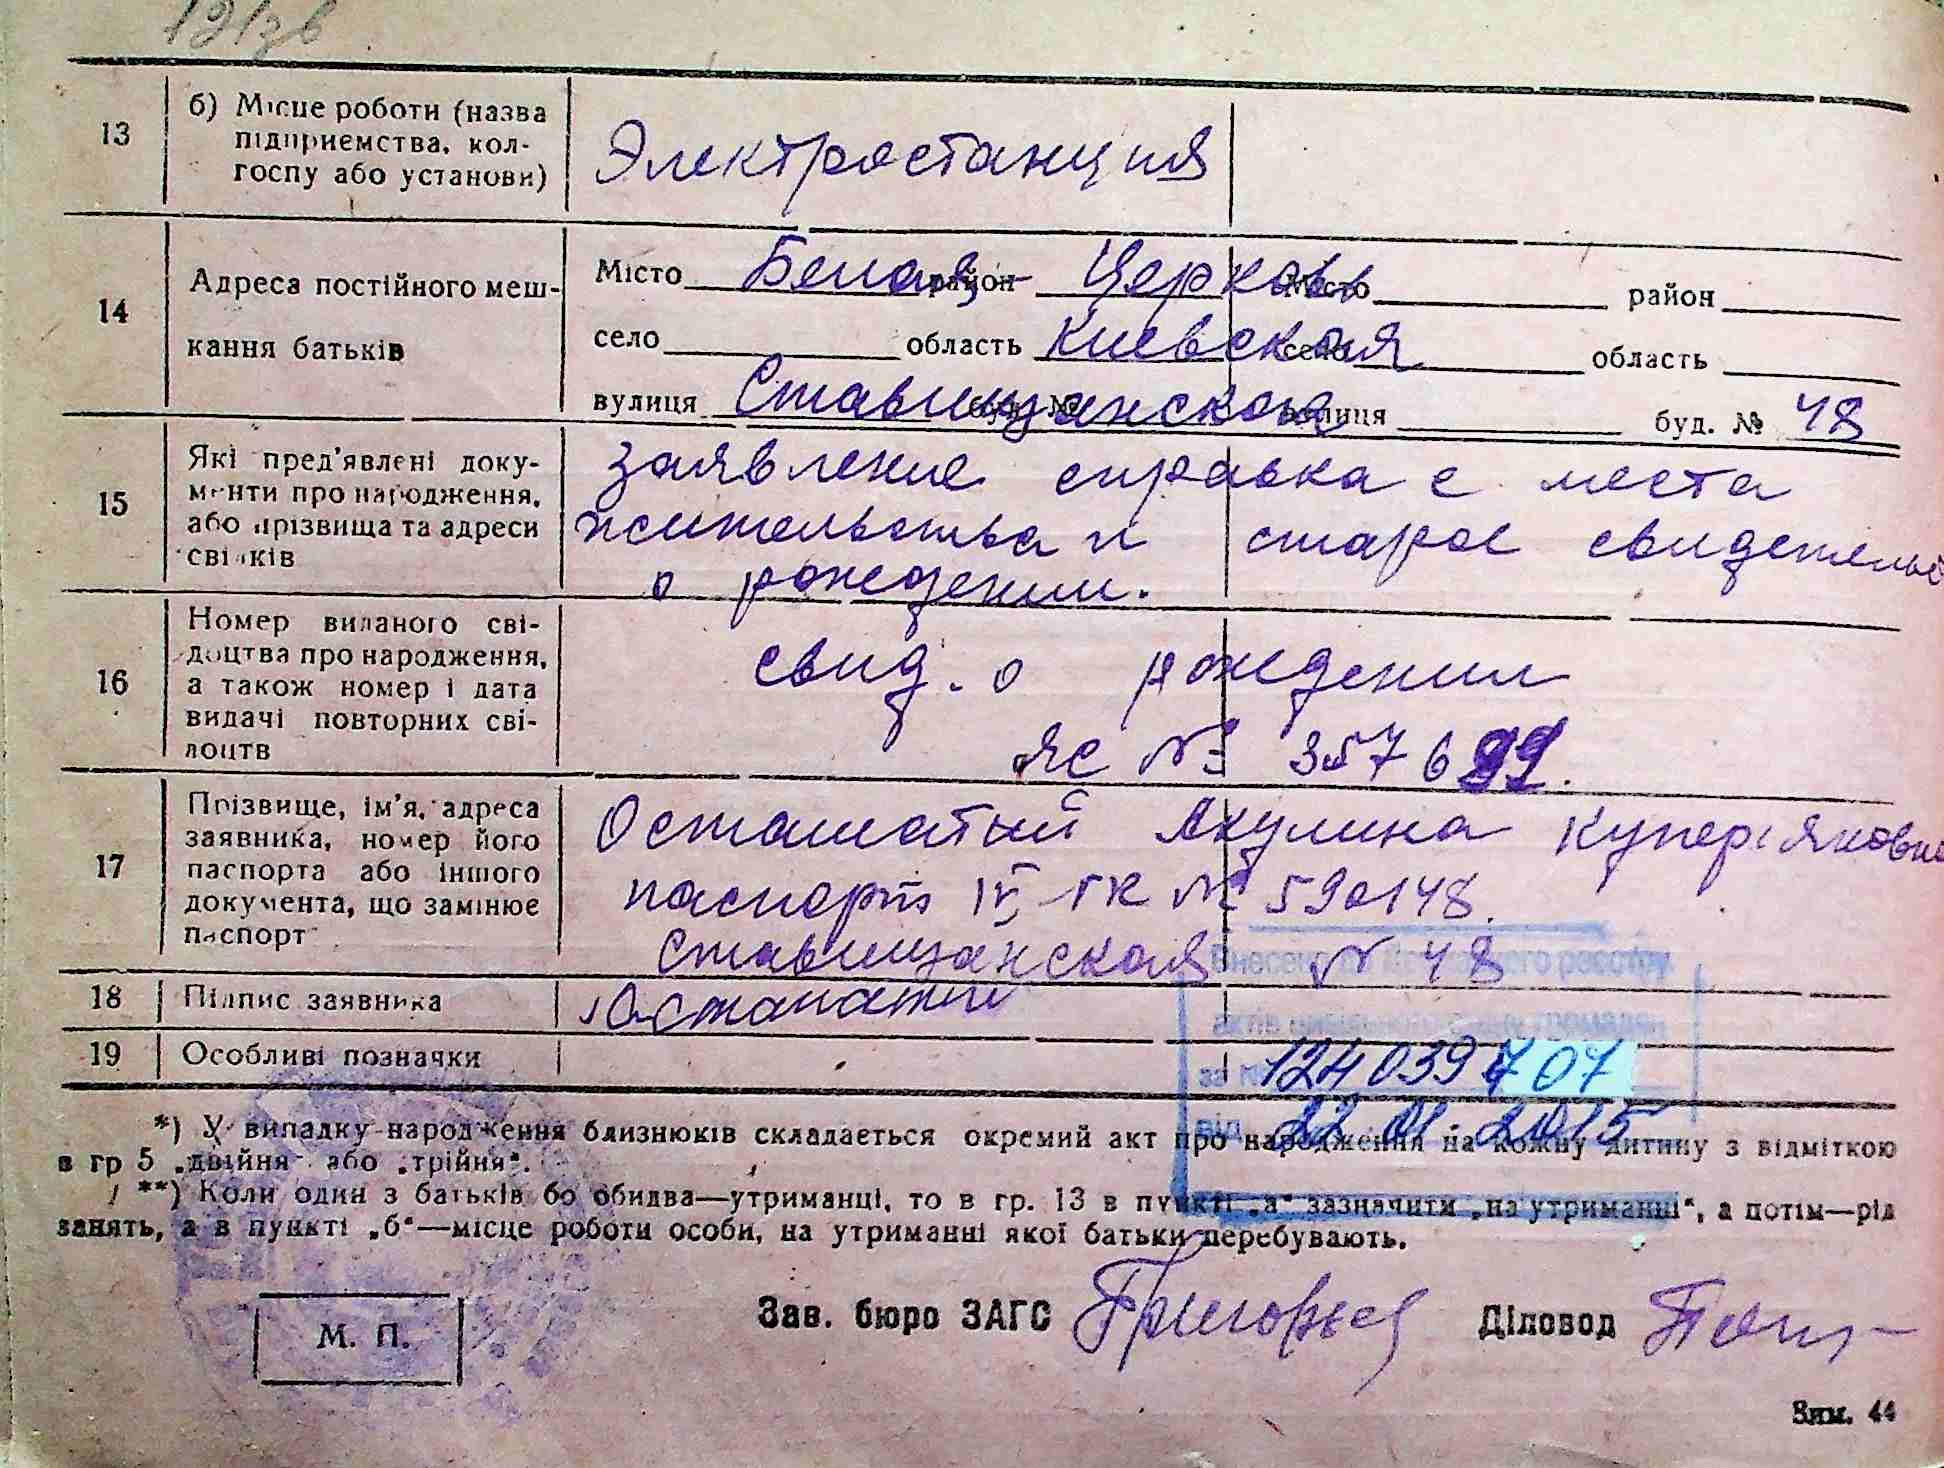 13
б) Місце роботи (назва
підприємства, кол-
госпу або установи)
Электростанция
14
Адреса постійного меш-
кання батьків
Місто Белая район Церковь Місто район
село область Киевская село область
вулиця Ставищанская буд. № вулиця буд. № 48
15
Які пред'явлені доку-
менти про народження,
або прізвища та адреси
свідків
заявление справка с места
жительства и старое свидетельс
о рождении.
16
Номер виданого сві-
доцтва про народження,
а також номер і дата
видачі повторних сві-
доцтв
свид. о рождении
ЯС № 357699.
17
Прізвище, ім'я, адреса
заявника, номер його
паспорта або іншого
документа, що замінює
паспорт
Акулина
паспорт IV ГК № 590148.
Ставищанская № 48
18 Підпис заявника
19 Особливі позначки
Внесено до Державного реєстру
актів цивільного стану громадян
за № 124039707
від 22.01.2015
*) У випадку народження близнюків складається окремий акт про народження на кожну дитину з відміткою
в гр 5 „двійня" або „трійня".
**) Коли один з батьків бо обидва—утриманці, то в гр. 13 в пункті „а" зазначити „на утриманні", а потім—рід
занять, а в пункті „б"—місце роботи особи, на утриманні якої батьки перебувають.
М. П.
Зав. бюро ЗАГС
Діловод
Зим. 44